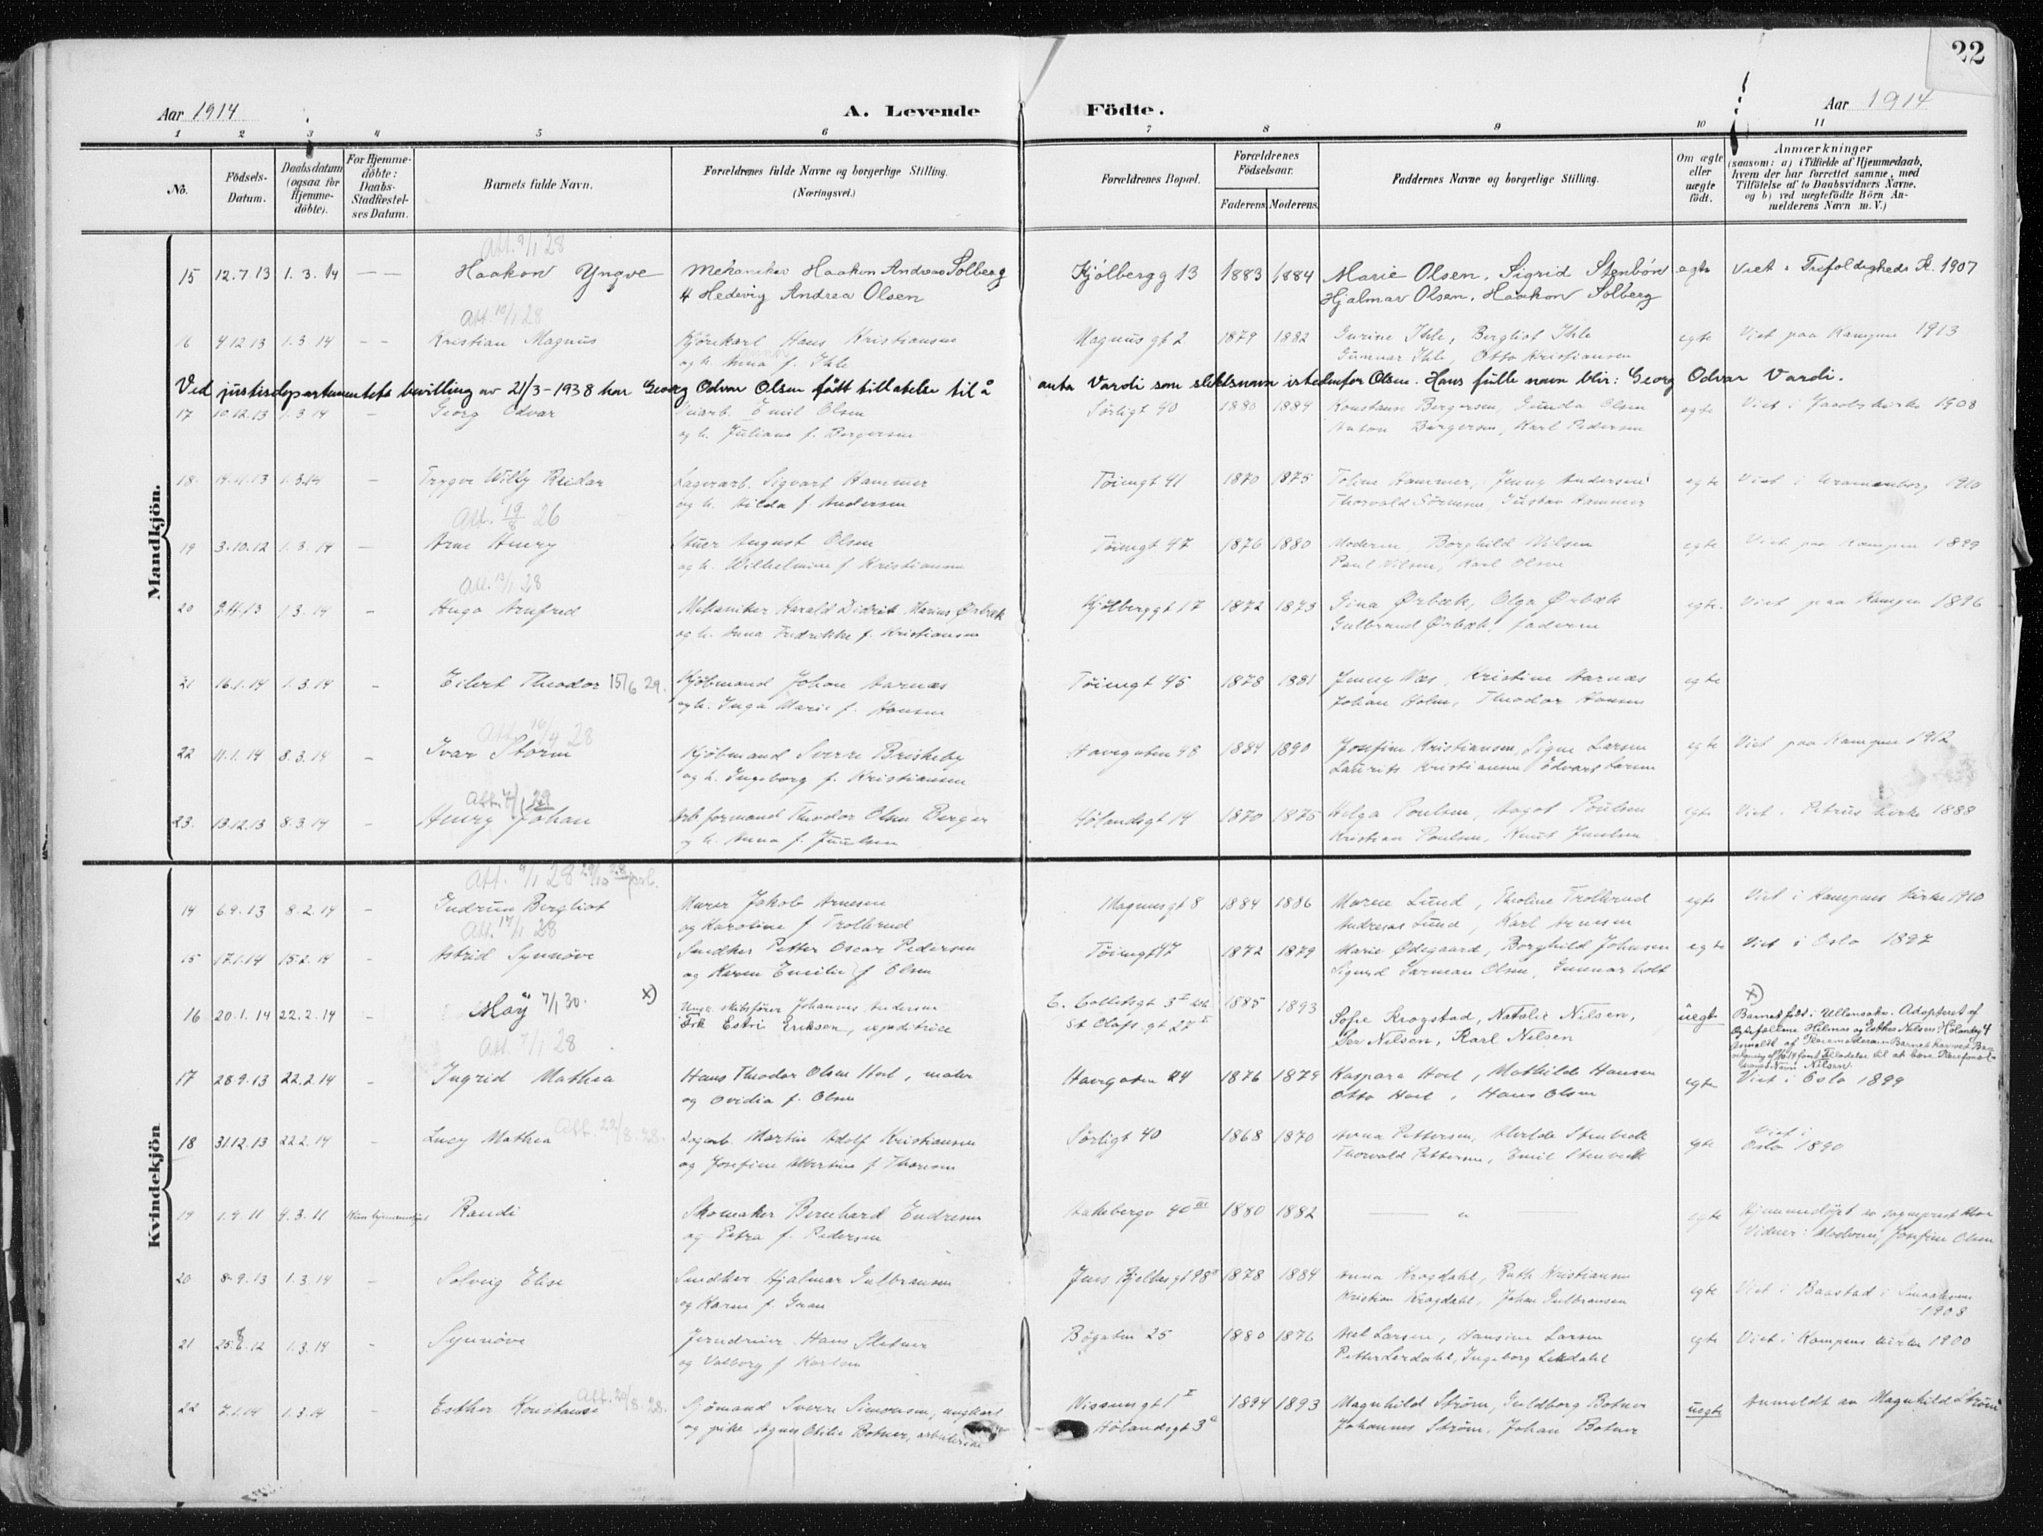 22
Aar 1914
A. Levende Födte.
Aar 1914
1 2 3 4 5 6 7 8 9 10 11
No.
Födsels-Datum.
Daabsdatum (ogsaa for Hjemme-döbte).
For Hjemme-döbte: Daabs-Stadfæstel-ses Datum.
Barnets fulde Navn.
Forældrenes fulde Navne og borgerlige Stilling. (Næringsvei.)
Forældrenes Bopæl.
Forældrenes Födselsaar.
Faderens. Moderens.
Faddernes Navne og borgerlige Stilling.
Om ægte eller uægte födt.
Anmærkninger
(saasom: a) i Tilfælde af Hjemmedaab,
hvem der har forrettet samme, med
Tilföielse af to Daabsvidners Navne,
og b) ved uægtefödte Börn An-
melderens Navn m. V.)
Mandkjön.
Att. 9/1 28
15 12.7.13 1.3.14 — — Haakon Yngve Mekaniker Haakon Andreas Solberg Kjølbergg 13 1883 1884 Marie Olsen, Sigrid Stenbön egte Viet i Trefoldigheds K. 1907
H Hedevig Andrea Olsen Hjalmar Olsen, Haakon Solberg
Att. 10/1 28
16 4.12.13 1.3.14 — — Kristian Magnus Kjørekarl Hans Kristiansen Magnus gt 2 1879 1882 Gurine Ihle, Bergliot Ihle egte Viet paa Kampen 1913
og h. Anna f. Ihle Gunnar Ihle, Otto Kristiansen
Ved justisdepartementets bevilling av 21/3-1938 har Georg Odvar Olsen fått tillatelse til å anta Vardi som slektsnavn istedenfor Olsen. Hans fulle navn blir: Georg Odvar Vardi.
17 10.12.13 1.3.14 — Georg Odvar Emil Olsen Sørligt 40 1880 1884 Konstanse Bergersen, Gunda Olsen egte Viet i Jacobs kirke 1908
og h. Juliane f. Bergersen Anton Bergersen, Karl Pedersen
18. 14.11.13 1.3.14 — Trygve Willy Reidar Lagerarb. Sigvart Hammer Tøiengt 41 1870 1875 Toline Hammer, Jenny Andersen egte Viet i Uranienborg 1910
og h. Hilda f. Andersen Thorvald Sørensen, Gustav Hammer
Att. 19/8 26
19 3.10.12 1.3.14 — Arne Henry Stuer August Olsen Tøiengt 47 1876 1880 Moderen, Borghild Nilsen egte Viet paa Kampen 1899
og h. Wilhelmine f. Kristiansen Paul Nilsen, Karl Olsen
Att. 13/1 28
20 9.11.13 1.3.14 — Hugo Arnfred Mekaniker Harald Didrik Marius Ørbæk Kjølberggt 17 1872 1873 Gina Ørbæk, Olga Ørbæk egte. Viet paa Kampen 1896
og h. Anna Fredrikke f. Kristiansen Gulbrand Ørbæk, faderen
21 16.1.14 1.3.14 - Eilert Theodor 15/6 29. Kjøbmand Johan Aarnæs Tøiengt 45 1878 1881 Jenny Næs, Kristine Aarnæs egte
og h. Inga Marie f. Hansen Johan Holm, Theodor Hansen
Att. 16/4 28
22 11.1.14 8.3.14 — Ivar Storm Kjøbmand Sverre Briskeby Havegaten 48 1884 1890 Josefine Kristiansen, Signe Larsen egte Viet paa Kampen 1912
og h. Ingeborg f. Kristiansen Laurits Kristiansen, Edvard Larsen
Att. 7/1 29
23. 13.12.13 8.3.14 - Henry Johan Arb formand Theodor Olsen Berger Hølandsgt 14 1870 1875 Helga Poulsen, Aagot Poulsen egte Viet i Petrus kirke 1888
og h. Anna f. Juulsen Kristian Poulsen, Knut Juulsen
Kvindekjön
Att. 9/1 28
14 6.9.13 8.2.14 - Gudrun Bergliot Murer Jakob Arnesen Magnusgt 8 1884 1886 Maren Lund, Tholine Trollerud egte Viet i Kampens kirke 1910
og Karoline f Trollerud Andreas Lund, Karl Arnesen
Att. 17/1 28
15 17.1.14 15.2.14 - Astrid Synnøve Snedker Petter Oscar Pedersen Tøiengt 17 1872 1879 Marie Ødegaard, Borghild Johnsen egte Viet i Oslo 1897
og Karen Emilie f Olsen Sigurd Garman Olsen, Gunnar holt
16 20.1.14 22.2.14 - May 7/1 30. x) Ungk. skibsfører Johannes Andersen C. Colletsgt 3 1885 1893 Sofie Krogstad, Natalie Nilsen, uegte x)
Frk Estri Eriksen, expeditrice St Olafs gt 27 Per Nilsen, Karl Nilsen
Barnet født i Ullensaker. Adopteret af
Egtefællene Hilmar og Esther Nilsen Hølandsg 4
Anmeldt af Pleiemoderen
Nilsen
Att. 7/1 28
17 28.9.13 22.2.14 - Ingrid Mathea Hans Theodor Olsen Hoel, maler Havegaten 24 1876 1879 Kaspara Hoel, Mathilde Hansen egte Viet i Oslo 1899
og Ovidia f. Olsen Otto Hoel, Hans Olsen
18 31.12.13 22.2.14 - Lucy Mathea Att 22/8.28. Martin Adolf Kristiansen Sørligt 40 1868 1870 Anna Pettersen, Alvilde Stenbeck egte Viet i Oslo 1890
og Josefine Albertine f Thoresen Thorvald Pettersen, Emil Stenbeck
19 1.9.11 4.3.11 Randi Skomaker Bernhard Endresen Aakebergv 40 III 1880 1882 — „ egte Hjemmedøpt av sogneprest
og Petra f. Pedersen Vidner: , Josefine Olsen
20 8.9.13 1.3.14 - Solveig Elise Snedker Hjalmar Gulbransen Jens Bjelkesgt 98 1878 1884 Anna Krogdahl, Ruth Kristiansen egte Viet i Baastad i Smaalenene 1908
og Karen f. Gran Kristian Krogdahl, Johan Gulbransen
21 25.8.12 1.3.14 - Synnøve Jerndreier Hans Sletner Bøgaten 25 1880 1876 Larsen, Hansine Larsen egte Viet i Kampens kirke 1900
og Valborg f Karlsen Petter Lerdahl, Ingeborg Lerdahl
22 7.1.14 1.3.14 - Esther Konstanse Att. 20/8.28. Sjømand Sverre Simonsen, ungkarl Nissengt 1 I 1894 1893 Magnhild Strøm, Guldborg Botner uegte Anmeldt av Magnhild Strøm
og pike Agnes Otilie Botner, arbeiderske Hølandsgt 3 Johannes Strøm, Johan Botner